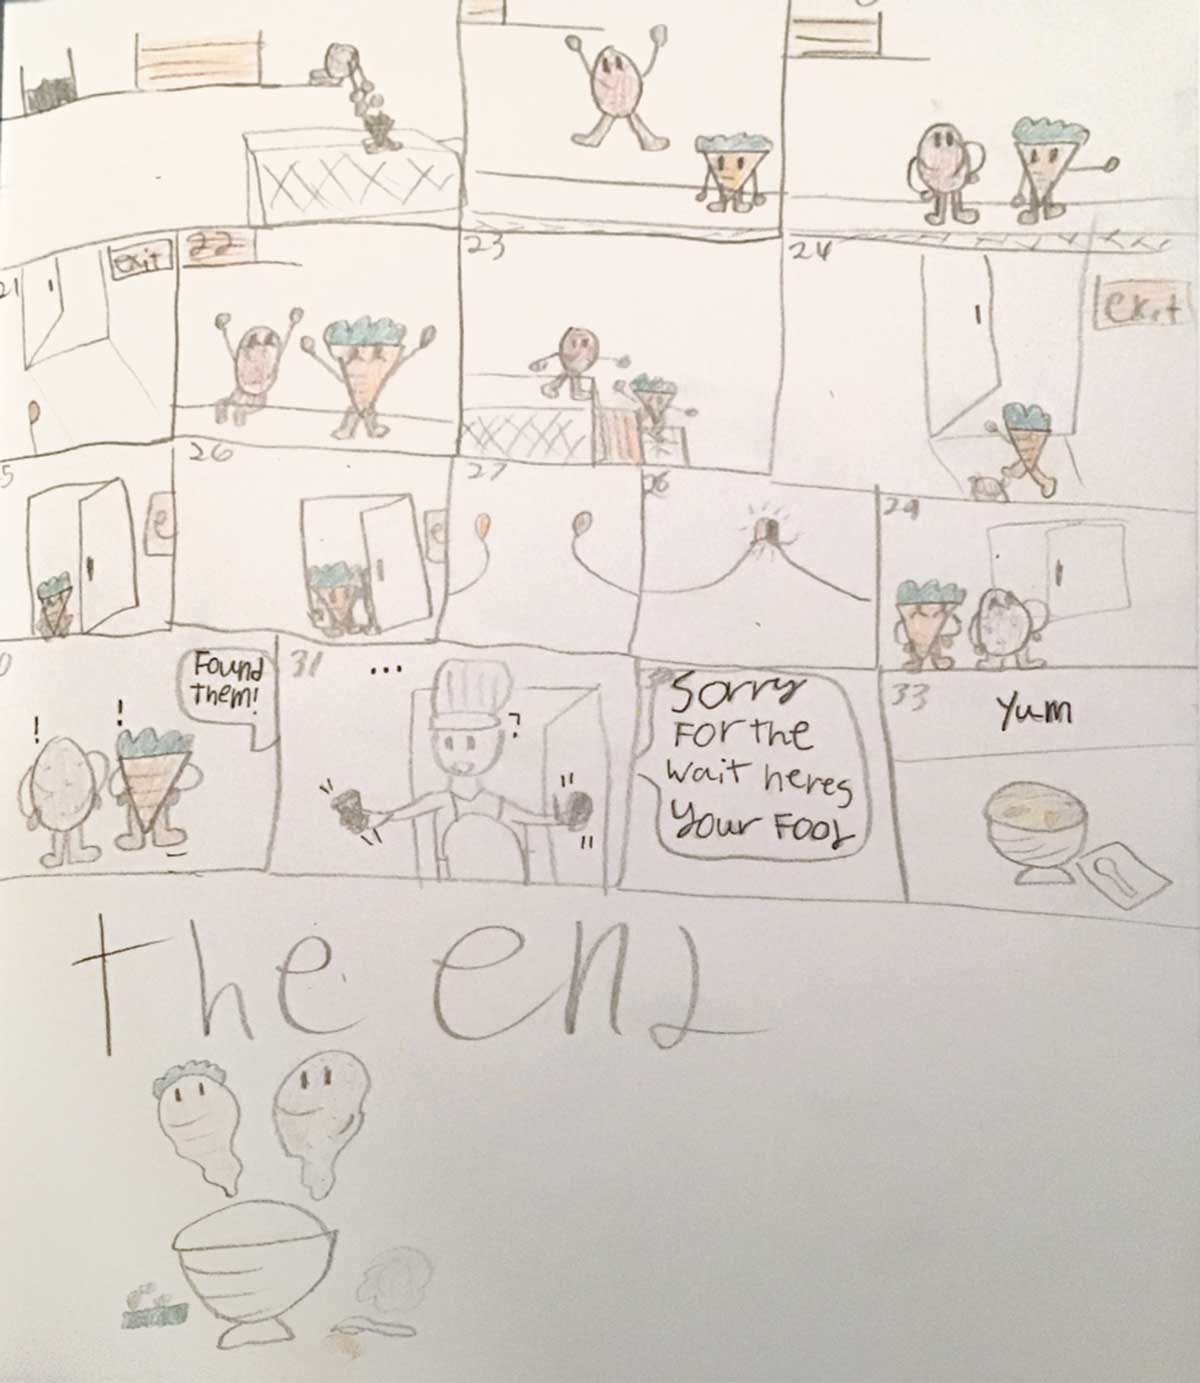 21
exit
22
23
24
exit
5
e
26
e
27
28
29
0
!
!
Found
them!
31
...
?
Sorry
For the
wait heres
Your Food
33
Yum
the end